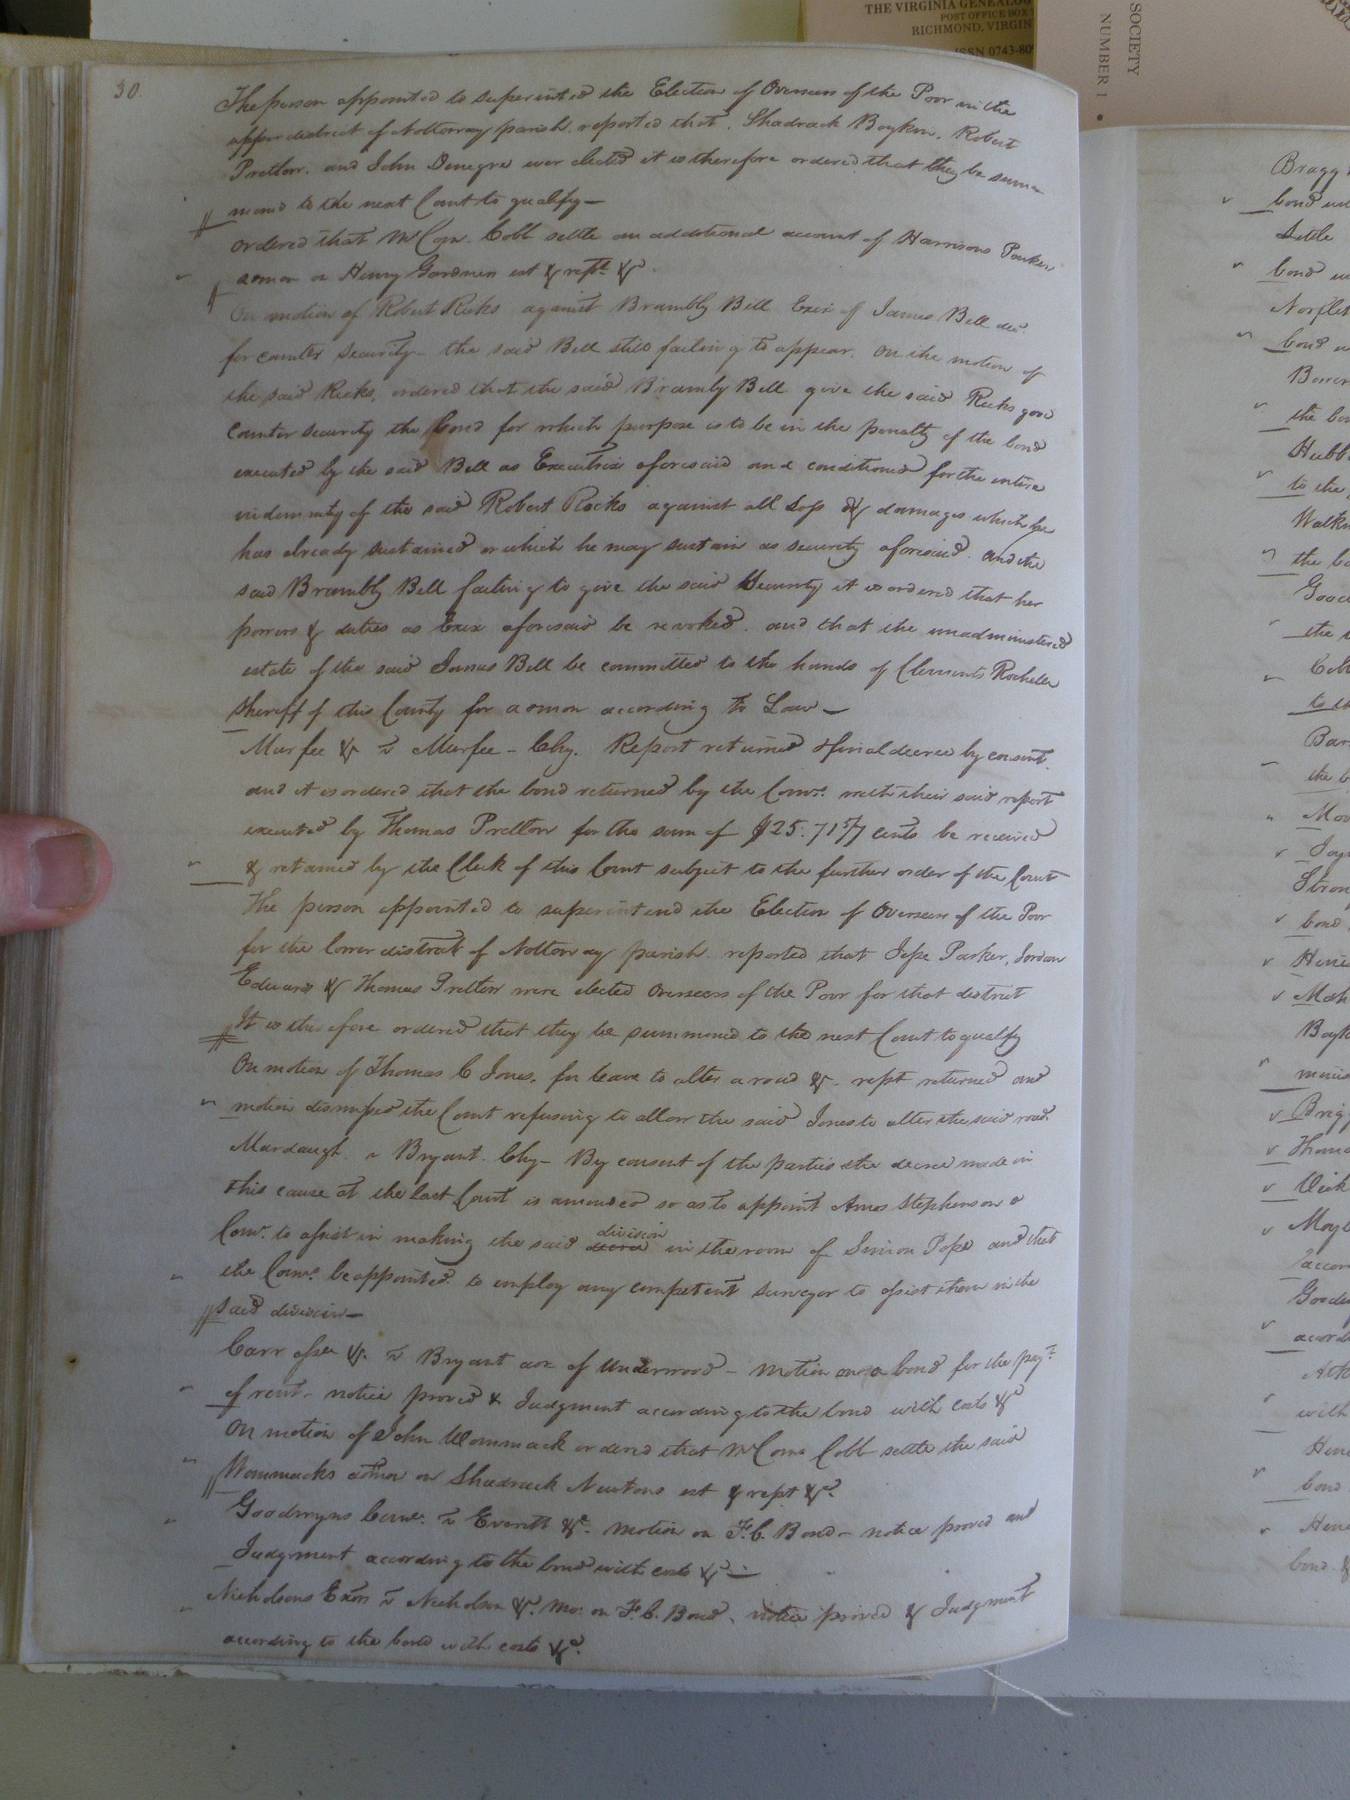 THE VIRGINIA GENEALOG
POST OFFICE BOX
RICHMOND, VIRGIN
ISSN 0743-809
SOCIETY
NUMBER 1
30.
The person appointed to superintend the Election of Overseers of the Poor in the
upper district of Nottoway parish reported that Shadrack Boykin, Robert
Pretlow, and John Denegre were elected it is therefore ordered that they be summ
moned to the next Court to qualify—
Ordered that Mr Comr. Cobb settle an additional account of Harrisons Parker
admon on Henry Gardners est & rept. &c.
On motion of Robert Ricks against Brambly Bell Exix of James Bell dec.
for counter security— the said Bell still failing to appear. On the motion of
the said Ricks, ordered that the said Brambly Bell give the said Ricks good
counter security the bond for which purpose is to be in the penalty of the bond
executed by the said Bell as Executrix aforesaid and conditioned for the entire
indemnity of the said Robert Ricks against all loss & damages which he
has already sustained or which he may sustain as security aforesaid. and the
said Brambly Bell failing to give the said Security it is ordered that her
powers & duties as Exix aforesaid be revoked. and that the unadministered
estate of the said James Bell be committed to the hands of Clements Rochelle
Sheriff of this County for admon according to Law—
Murfee &c vs Murfee - Chy. Report returned & final decree by consent.
and it is ordered that the bond returned by the Comrs. with their said report
executed by Thomas Pretlow for the sum of $25. cents be received
& retained by the Clerk of this Court subject to the further order of the Court
The person appointed to superintend the Election of Overseers of the Poor
for the lower district of Nottoway parish reported that Jesse Parker, Jordan
Edwards & Thomas Pretlow were elected Overseers of the Poor for that district
It is therefore ordered that they be summoned to the next Court to qualify
On motion of Thomas C Jones, for leave to alter a road &c. rept returned and
motion dismissed the Court refusing to allow the said Jones to alter the said road.
Murdaugh. vs Bryant. Chy— By consent of the parties the decree made in
this cause at the last Court is amended so as to appoint Amos Stephenson a
Comr. to assist in making the said decree division in the room of Simion Pope and that
the Comrs. be appointed to employ any competent surveyor to assist them in the
said division—
Carr assee &c. vs Bryant aor of Underwood — motion on a bond for the payt.
of rent. notice proved & Judgment according to the bond with costs &c
On motion of John Wommack ordered that Mr Comr Cobb settle the said
Wommacks admon on Shadrack Newtons est & rept &c.
Goodwyns vs Everett &c. motion on F.C. Bond— notice proved and
Judgment according to the bond with costs &c—
Nicholsons Exors vs Nicholson &c. Mo: on F.C. Bond. notice proved & Judgment
according to the bond with costs &c.
Bragg
bond
Settle
bond
Norflet
bond
the bo
Hubb
to the
the bo
the
to th
Bar
the b
Stron
bond
Boyk
Brigg
Thoma
Goodw
accord
with
bond
bond &